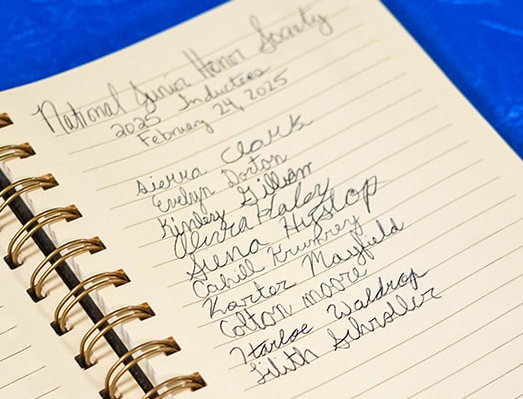 National Junior Honor Society
2025 Inductees
February 24, 2025
Sierra Clark
Evelyn Dorton
Kinsley Gilliam
Haley
Gena Hyslop
Cahill Krumrey
Karter Mayfield
Colton Moore
Harloe Waldrop
Lilith Schroller